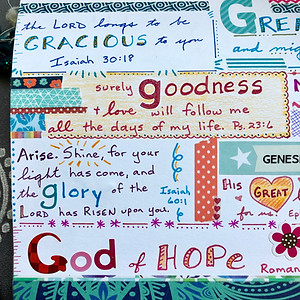 the LORD longs to be
GRACIOUS to you
Isaiah 30:18
GRE
and mig
surely goodness
+ love will follow me
all the days of my life. Ps. 23:6
Arise. Shine, for your
light has come, and
the glory of the
LORD has RISEN upon you.
Isaiah
60:1
GENES
His GREAT
for us.
God of HOPe
Roman